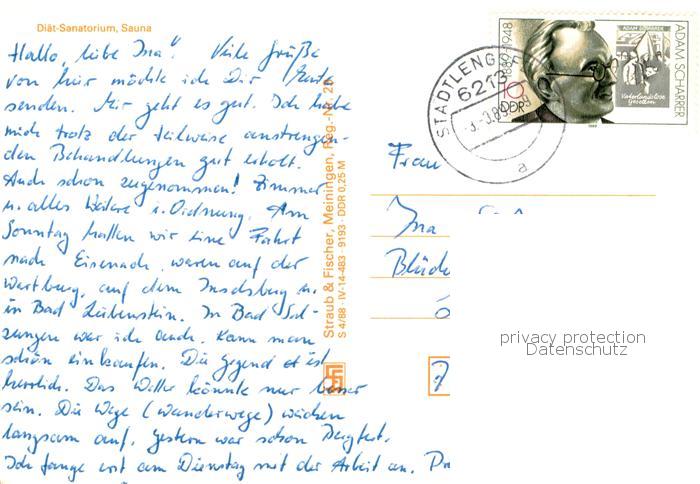 Diät-Sanatorium, Sauna
Hallo, liebe Ina! Viele Grüße
von hier möchte ich Dir heute
senden. Mir geht es gut. Ich habe
mich trotz der teilweise anstrengen-
den Behandlungen gut erholt.
Auch schon zugenommen! Zimmer
u. alles Weitere i. Ordnung. Am
Sonntag hatten wir eine Fahrt
nach Eisenach, waren auf der
Wartburg, auf dem Inselsberg u.
in Bad Liebenstein. In Bad Sal-
zungen war ich auch. Kann man
schön einkaufen. Die Gegend ist
herrlich. Das Wetter könnte nur besser
sein. Die Wege (Wanderwege) weichen
langsam auf. Gestern war schon Bergfest.
Ich fange erst am Dienstag mit der Arbeit an.
Straub & Fischer, Meiningen, Reg.-Nr. 22
S 4/88 · IV-14-483 · 9193 · DDR 0,25 M
STADTLENGSF
6213
a
1889-1948
ADAM SCHARRER
Vaterlandslose Gesellen
10
DDR
1989
Frau
Ina
privacy protection
Datenschutz